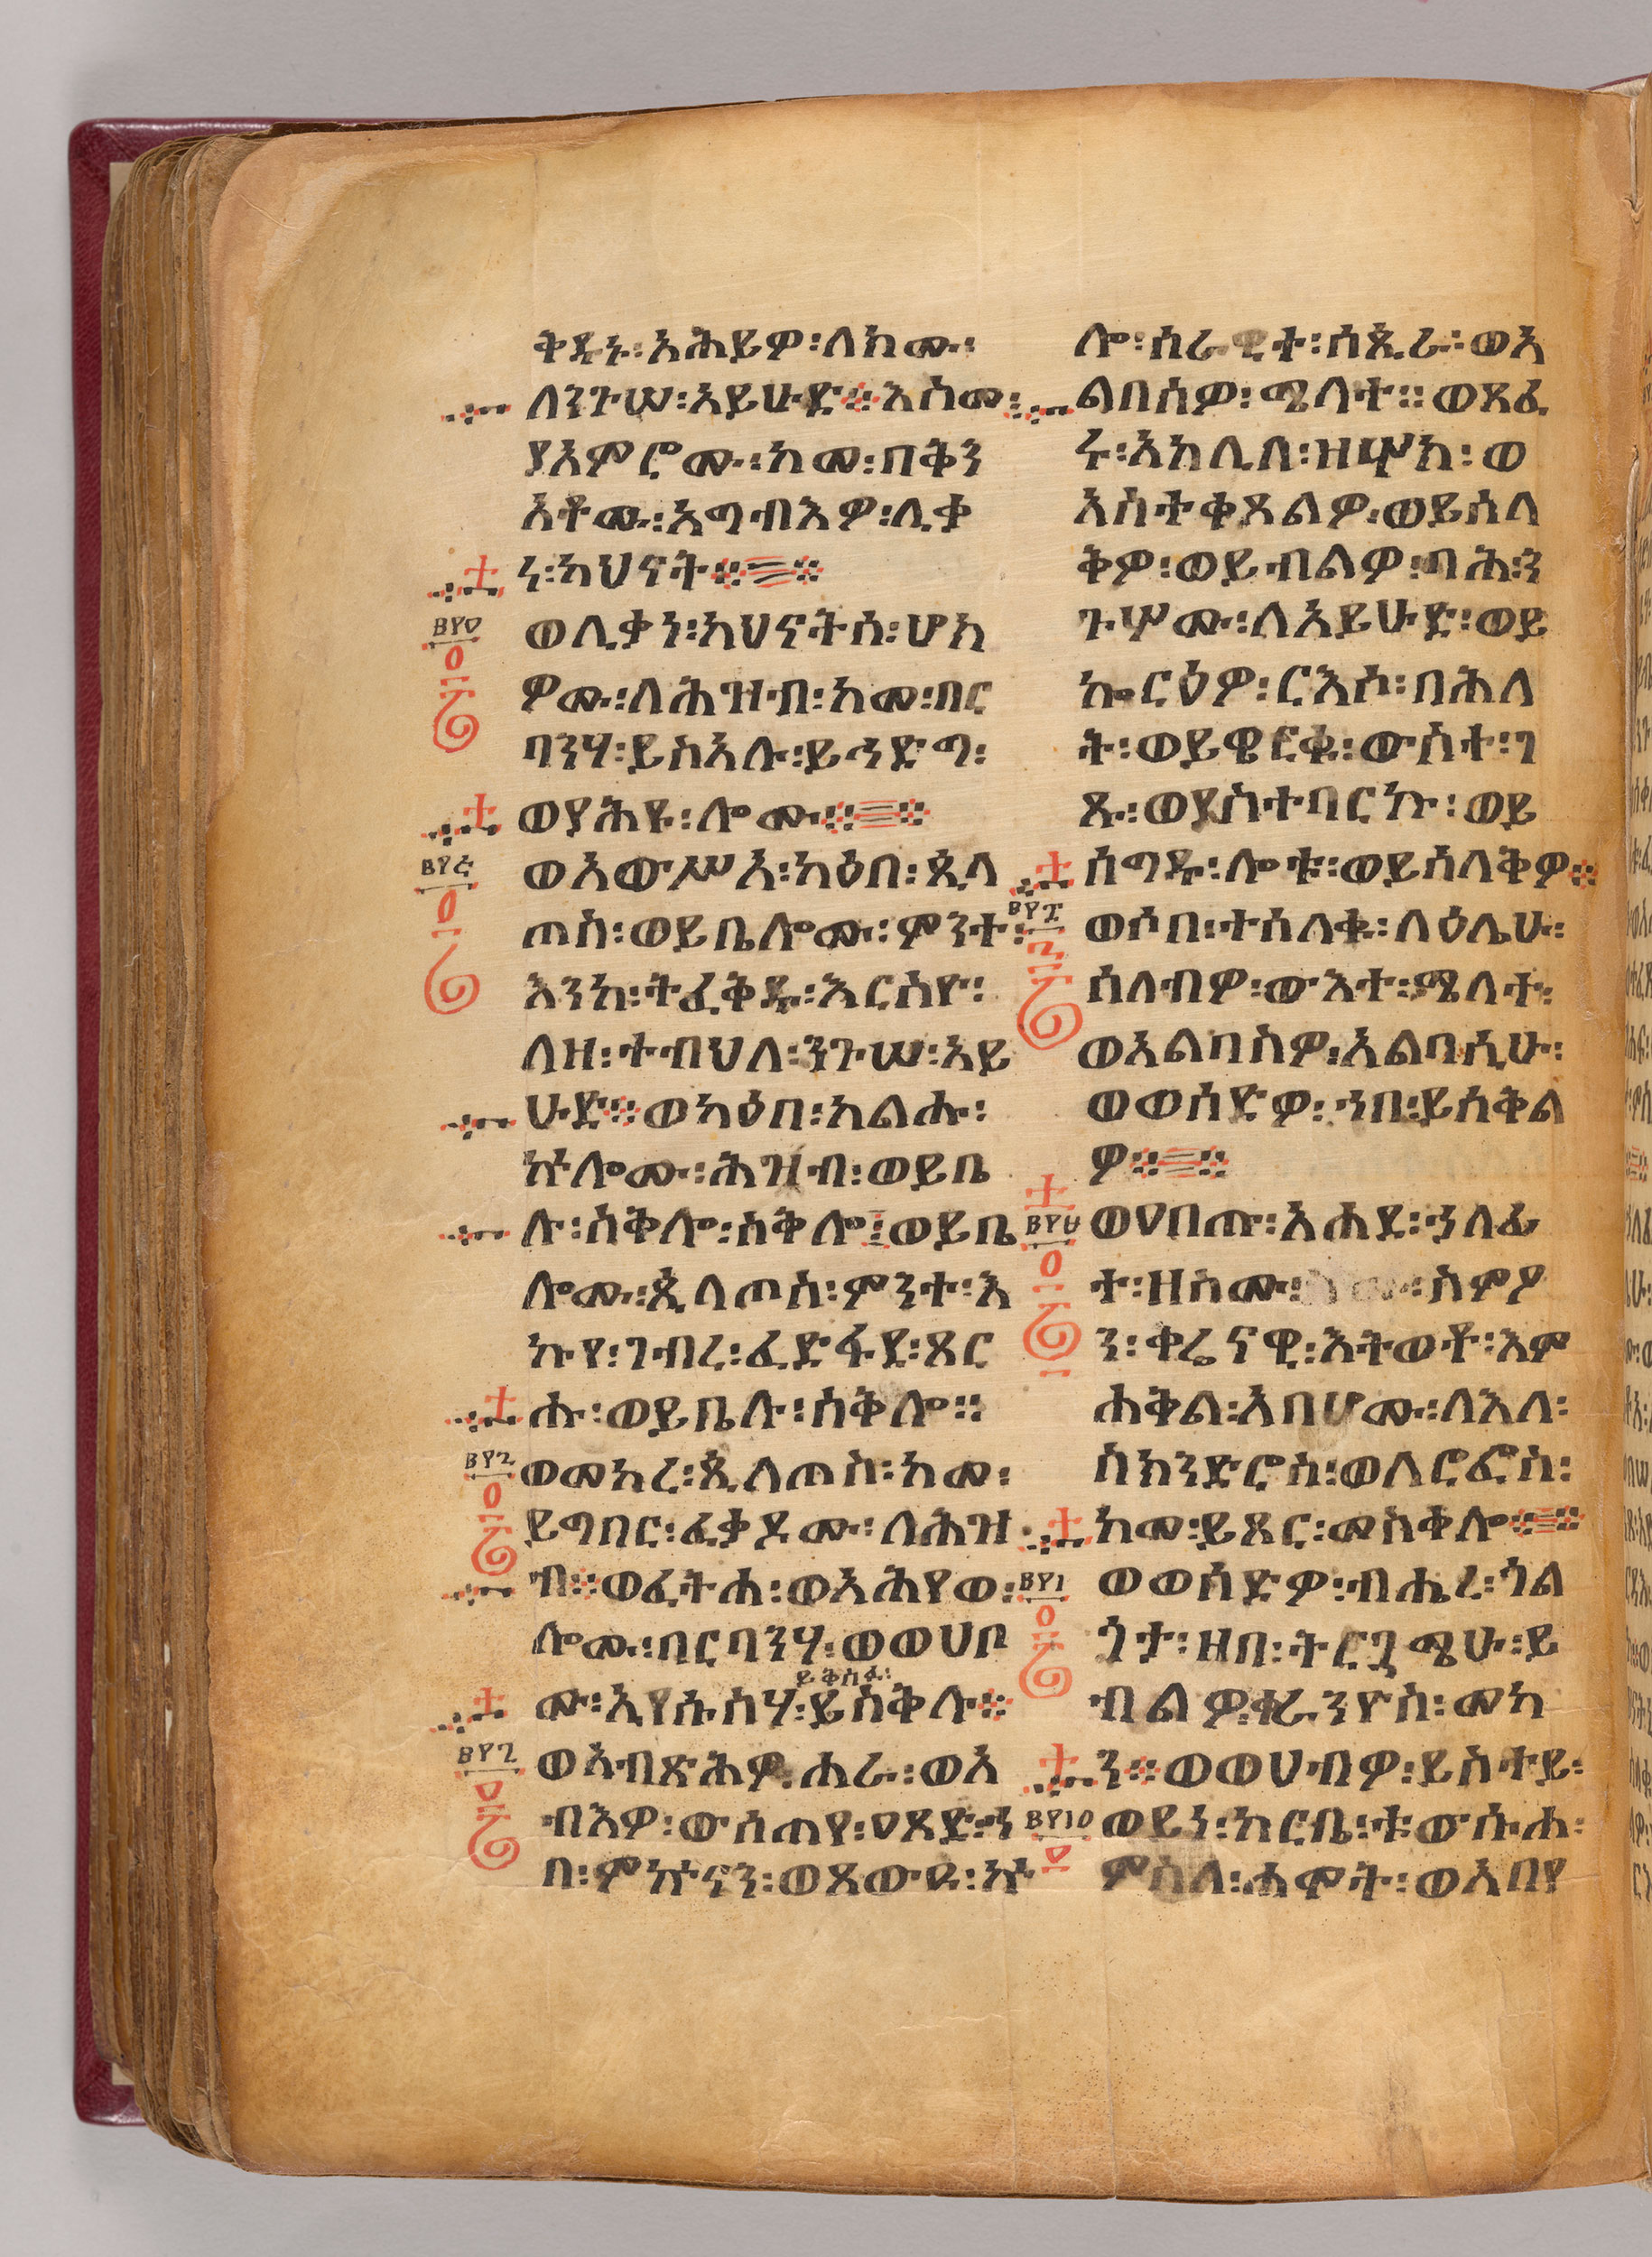 ቅዱኑ፡አሕይዎ፡ለክሙ፡
ለንጉሠ፡አይሁድ፨እስመ፡
ያአምሮሙ፡ከመ፡በቅን
አቶሙ፡አግብእዎ፡ሊቃ
ነ፡ካህናት፨
ወሊቃነ፡ካህናትሰ፡ሆከ
ዎሙ፡ለሕዝብ፡ከመ፡በር
ባንሃ፡ይስአሉ፡ይኅድግ፡
ወያሕዩ፡ሎሙ፨
ወአውሥአ፡ካዕበ፡ጲላ
ጦስ፡ወይቤሎሙ፡ምንተ፡
እንከ፡ትፈቅዱ፡እርስዮ፡
ለዘ፡ተብህለ፡ንጉሠ፡አይ
ሁድ፨ወካዕበ፡ከልሑ፡
ኵሎሙ፡ሕዝብ፡ወይቤ
ሉ፡ስቅሎ፡ስቅሎ፤ወይቤ
ሎሙ፡ጲላጦስ፡ምንተ፡እ
ኩየ፡ገብረ፡ፈድፋደ፡ጸር
ሑ፡ወይቤሉ፡ስቅሎ።
ወመከረ፡ጲላጦስ፡ከመ፡
ይግበር፡ፈቃዶሙ፡ለሕዝ
ብ፨ወፈትሐ፡ወአሕየወ፡
ሎሙ፡በርባንሃ፡ወወሀቦ
ይቅስፉ፡
ሙ፡ኢየሱስሃ፡ይስቅሉ፨
ወአብጽሕዎ፡ሐራ፡ወአ
ብእዎ፡ውሰጠየ፡ዐጸድ፡ኀ
በ፡ምኵናን፡ወጸውዑ፡ኵ
ሎ፡ሰራዊተ፡ሰጲራ፡ወአ
ልበስዎ፡ሜላተ።ወጸፈ
ሩ፡አክሊለ፡ዘሦክ፡ወ
አስተቀጸልዎ፡ወይሰላ
ቅዎ፡ወይብልዎ፡ባሕ፡ን
ጉሦሙ፡ለአይሁድ፡ወይ
ኰርዕዎ፡ርእሶ፡በሕለ
ት፡ወይዌርቁ፡ውስተ፡ገ
ጹ፡ወያስተባርኩ፡ወይ
ሰግዱ፡ሎቱ፡ወይሰላቅዎ፨
ወሶበ፡ተሰለቁ፡ላዕሌሁ፡
ሰለብዎ፡ውእተ፡ሜላተ፡
ወአልባስዎ፡አልባሲሁ፡
ወወሰድዎ፡ኀበ፡ይሰቅል
ዎ፨
ወዐበጡ፡አሐደ፡ኃላፊ
ተ፡ዘስሙ፡ስምዖ
ን፡ቀሬናዊ፡እትወቶ፡እም
ሐቅል፡አቡሆሙ፡ለእለ፡
ስክንድሮስ፡ወለሮፎስ፡
ከመ፡ይጸር፡መስቀሎ፨
ወወሰድዎ፡ብሔረ፡ጎል
ጎታ፡ዘበ፡ትርጓሜሁ፡ይ
ብልዎ፡ቀራንዮስ፡መካ
ን፨ወወሀብዎ፡ይስተይ፡
ወይነ፡ከርቤ፡ቱውሱሐ፡
ምስለ፡ሐሞት፡ወአበየ